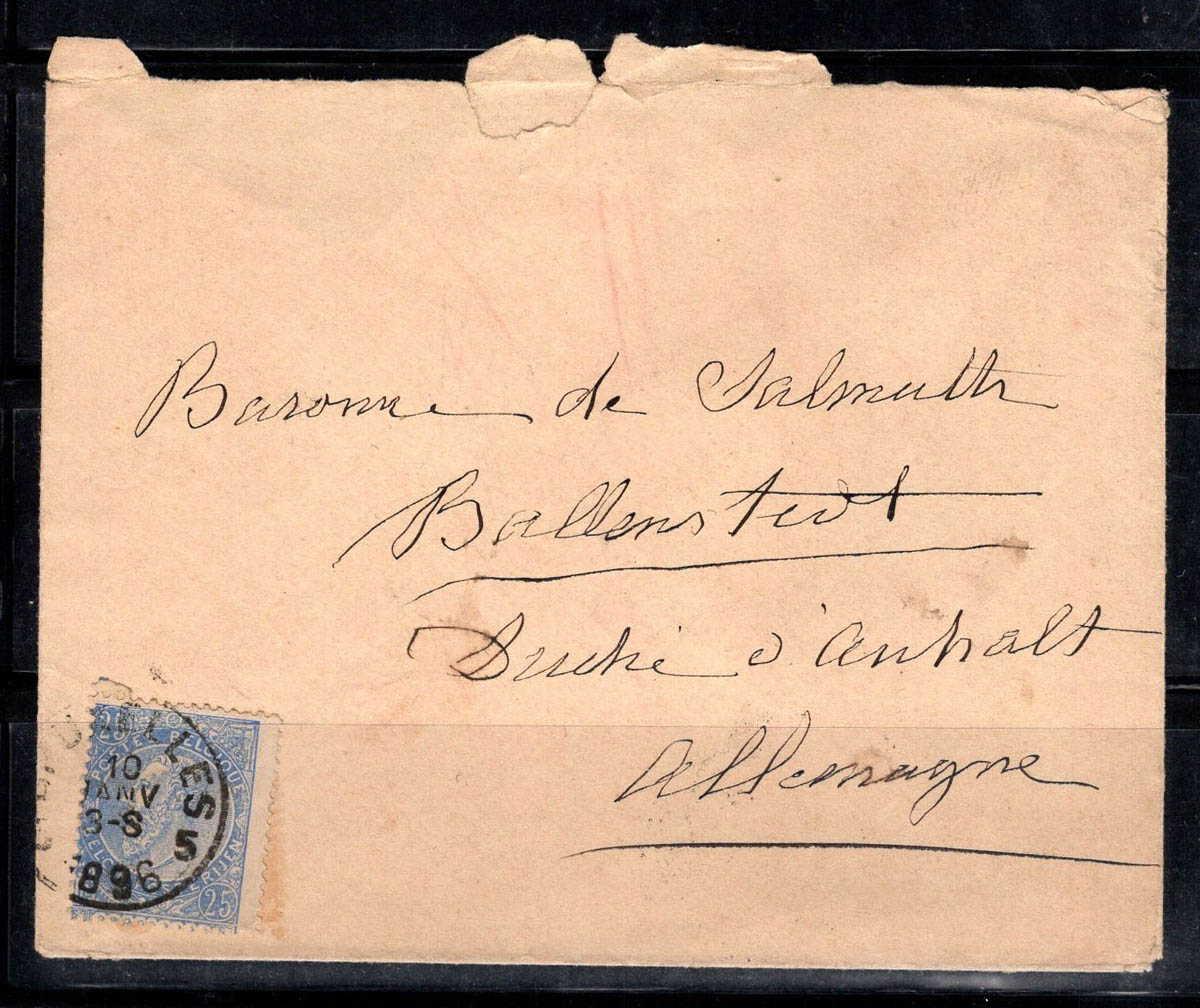 Baronne de Salmuth
Ballenstedt
Duché d'Anhalt
Allemagne
25
POSTES BELGIQUE
BRUXELLES 5
10
JANV
8-S
1896
25